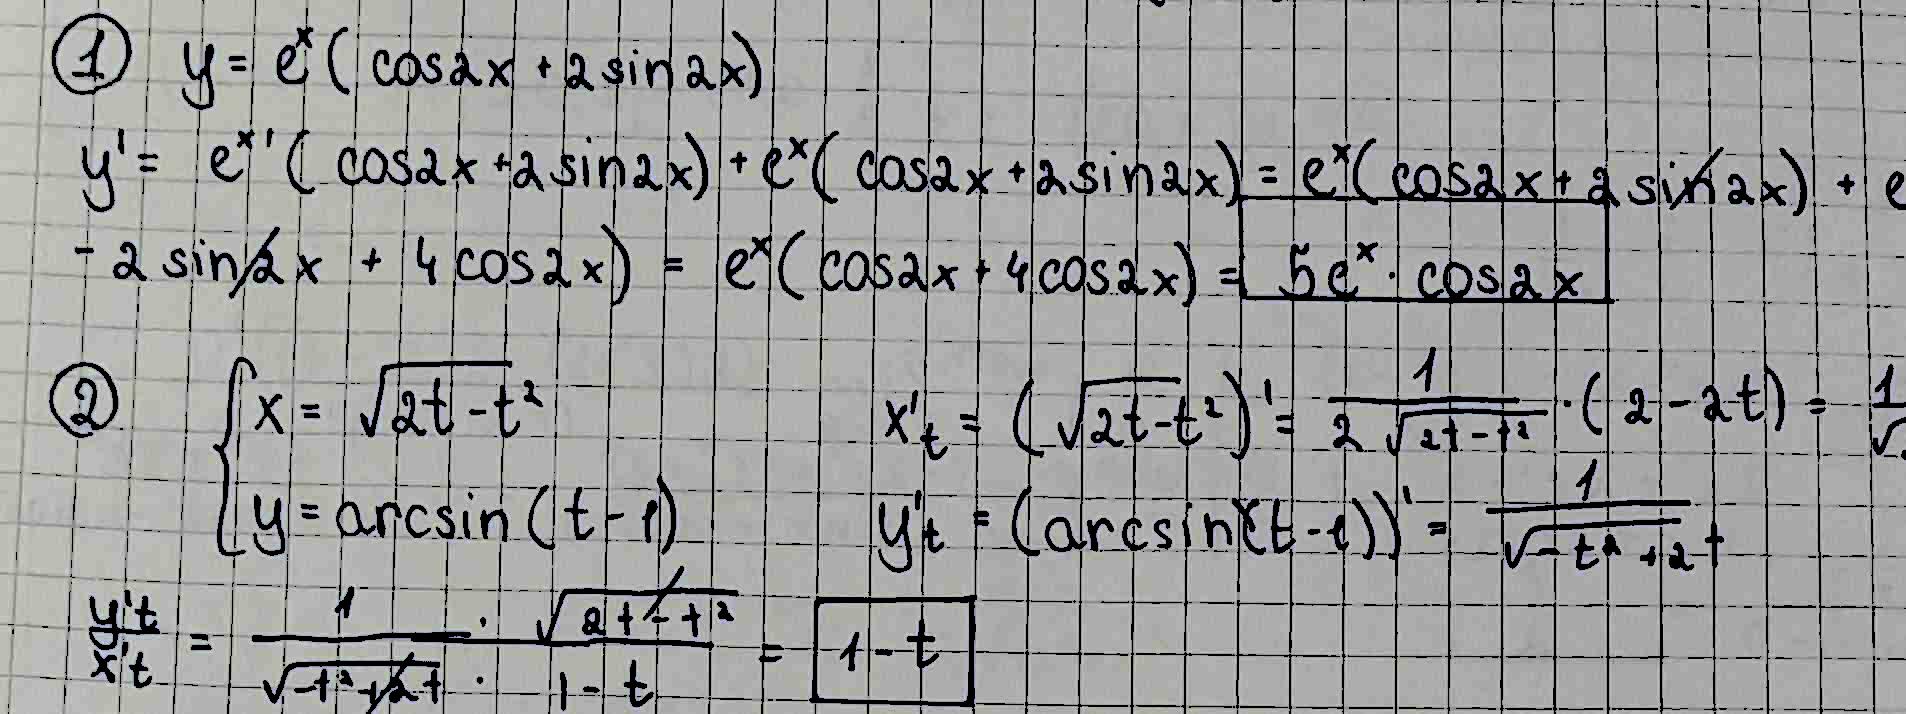 ① y = e^x ( cos2x + 2 sin2x)
y' = e^x' ( cos2x + 2 sin2x) + e^x ( cos2x + 2 sin2x) = e^x ( cos2x + 2 sin2x) + e
- 2 sin2x + 4 cos2x) = e^x ( cos2x + 4 cos2x) = 5e^x · cos2x
② { x = √(2t - t²) x't = ( √(2t - t²) )' = 1 / (2 √(2t - t²)) · ( 2 - 2t) = 1/√
y = arcsin ( t - 1) y't = (arcsin(t - 1))' = 1 / √(-t² + 2t)
y't / x't = 1 / √(-t² + 2t) · √(2t - t²) / (1 - t) = 1 - t